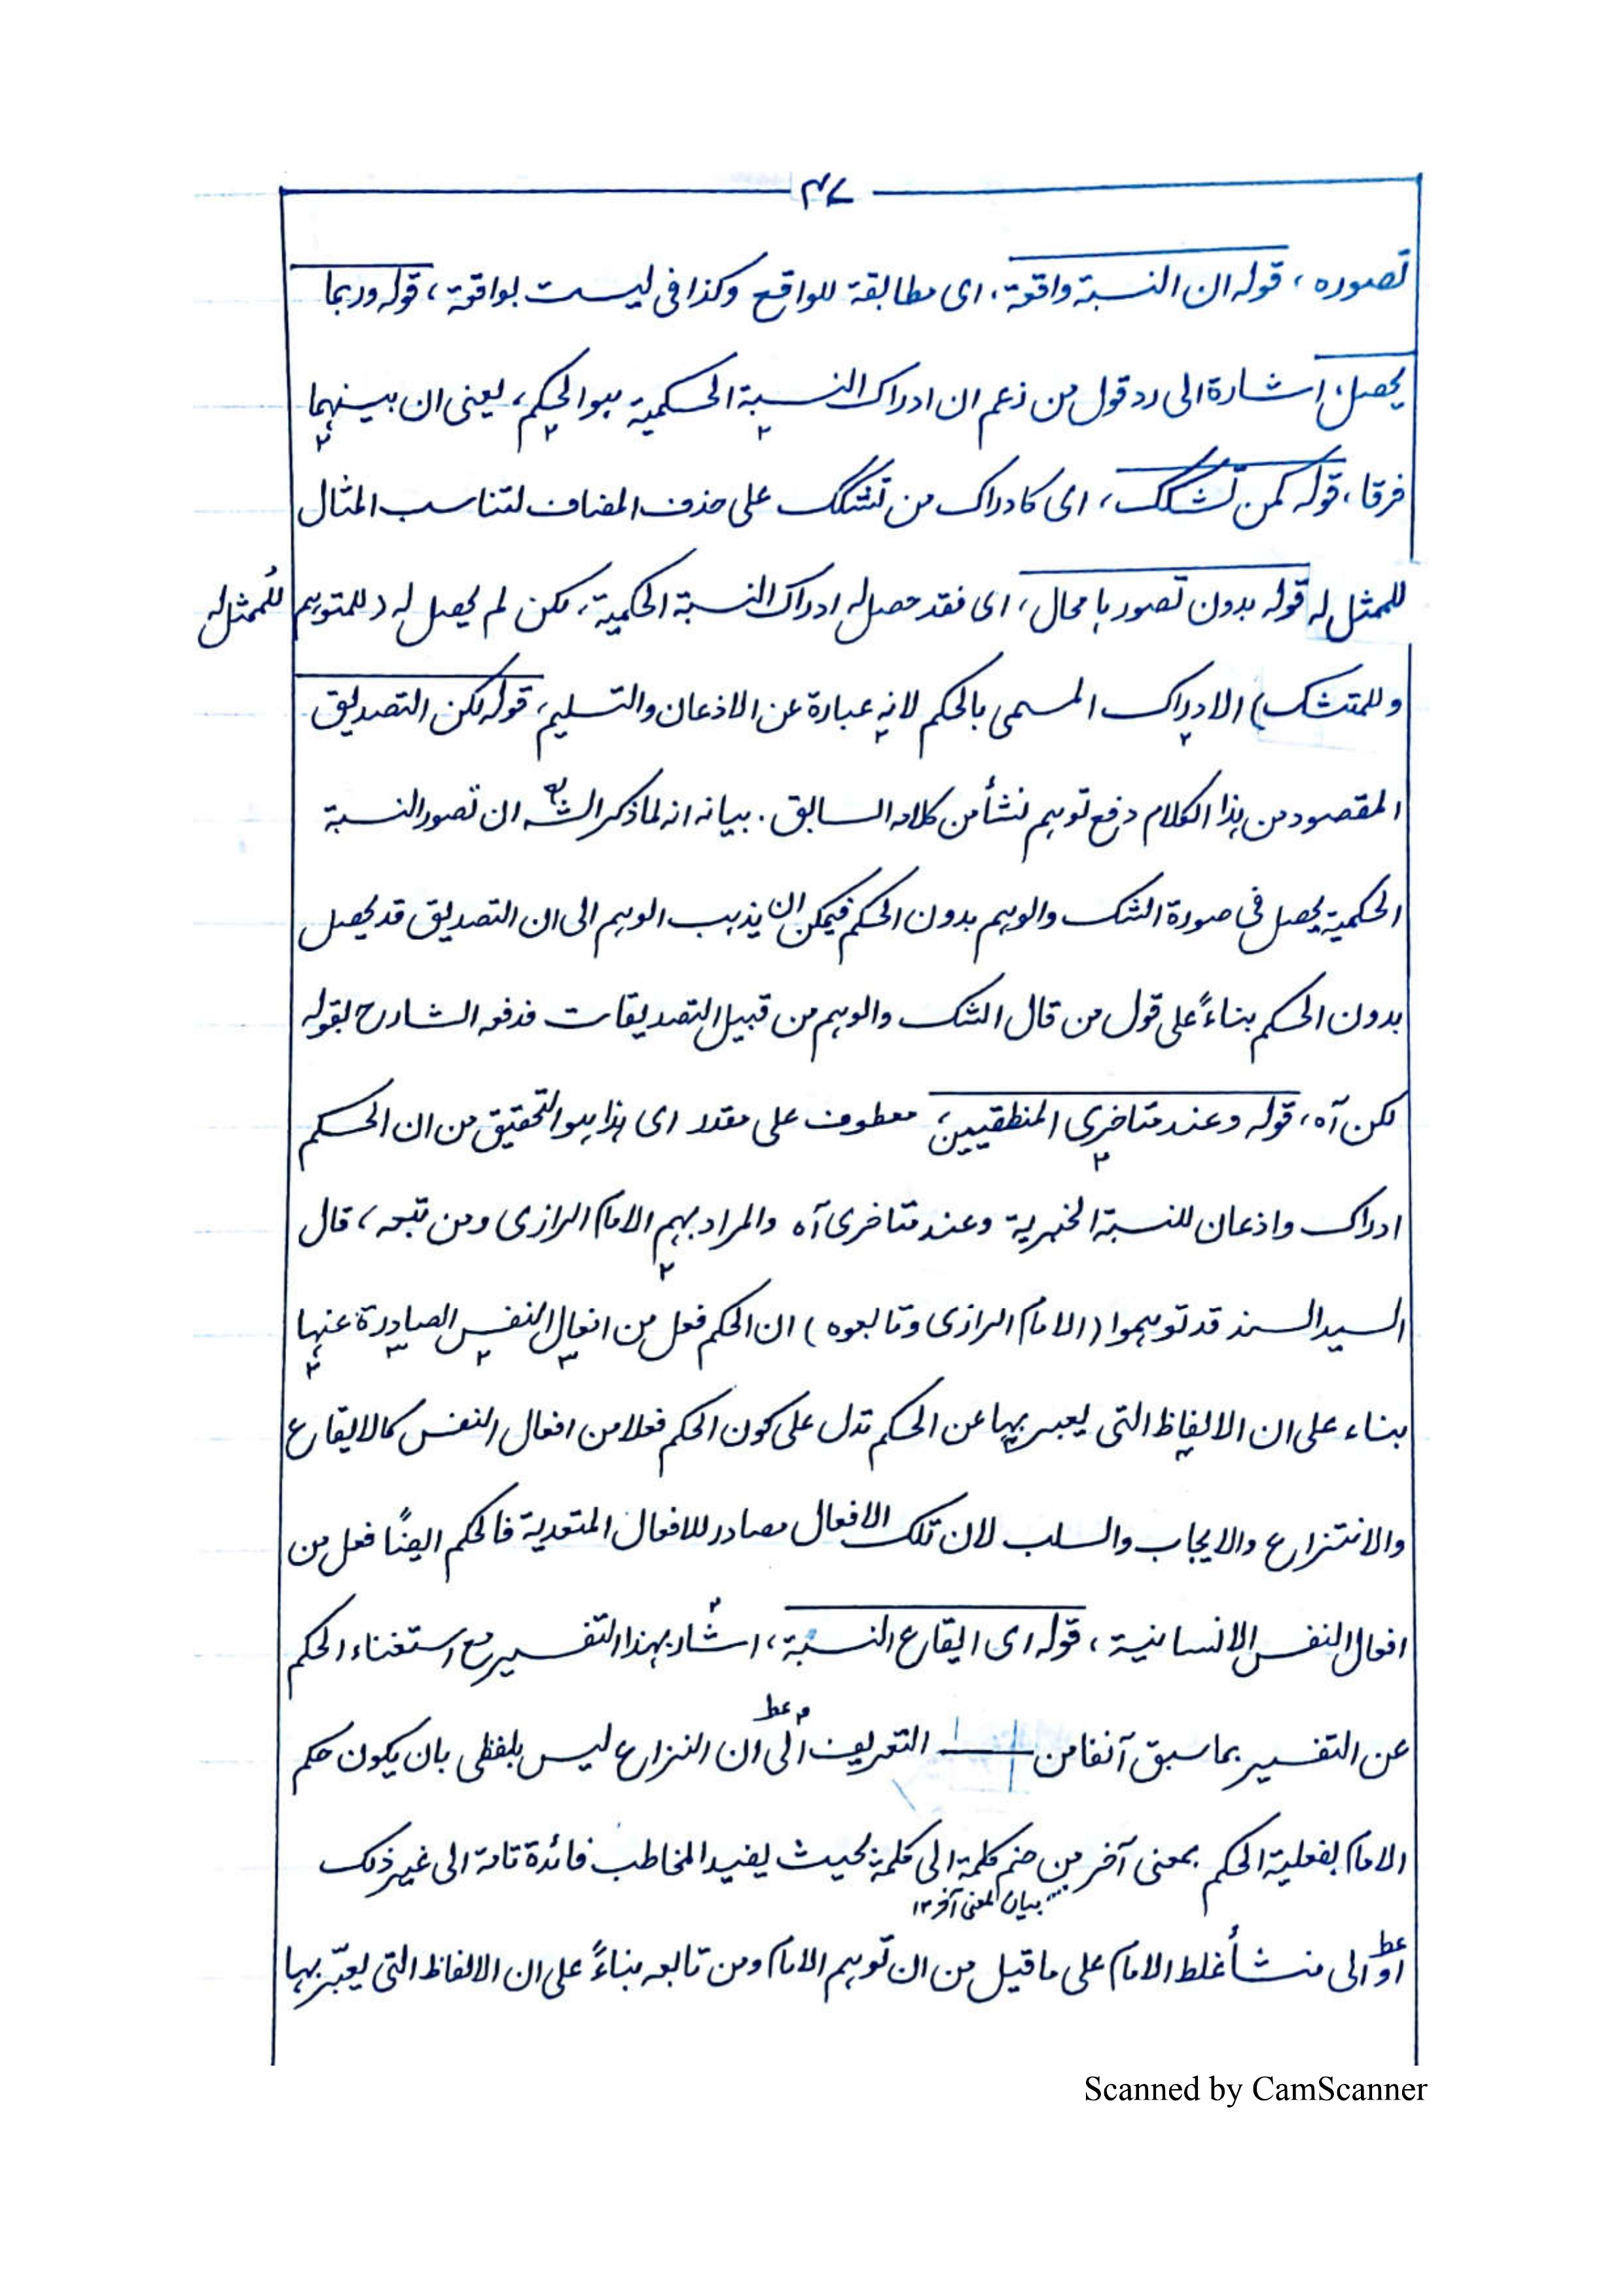 ٣٧
تصوره ، قوله ان النسبة واقعة ، اى مطابقة للواقع وكذا فى ليست بواقعة ، قوله وربما
يحصل ، اشارة الى رد قول من زعم ان ادراك النسبة الحكمية هو الحكم ، يعنى ان بينهما
فرقا ، قوله كمن تشكك ، اى كادراك من تشكك على حذف المضاف لتناسب المثال
للممثل له قوله بدون تصور ، اى فقد حصل له ادراك النسبة الحكمية ، لكن لم يحصل له (للمتوهم
للممثل له
وللمتشكك) الادراك المسمى بالحكم لانه عبارة عن الاذعان والتسليم ، قوله لكن التصديق
المقصود من هذا الكلام دفع توهم نشأ من كلامه السابق . بيانه انه لما ذكر الشه ان تصور النسبة
الحكمية يحصل فى صورة الشك والوهم بدون الحكم فيمكن ان يذهب الوهم الى ان التصديق قد يحصل
بدون الحكم بناءً على قول من قال الشك والوهم من قبيل التصديقات فدفعه الشارح بقوله
لكن آه ، قوله وعند متاخرى المنطقيين ، معطوف على مقدر اى هذا هو التحقيق من ان الحكم
ادراك واذعان للنسبة الخبرية وعند متاخرى آه والمراد بهم الامام الرازى ومن تبعه ، قال
السيد السند قد توهموا (الامام الرازى وتابعوه) ان الحكم فعل من افعال النفس الصادرة عنها
بناء على ان الالفاظ التى يعبر بها عن الحكم تدل على كون الحكم فعلا من افعال النفس كالايقاع
والانتزاع والايجاب والسلب لان تلك الافعال مصادر للافعال المتعدية فالحكم ايضًا فعل من
افعال النفس الانسانية ، قوله اى ايقاع النسبة ، اشار بهذا التفسير مع استغناء الحكم
عن التفسير بما سبق آنفا من التعريف الى ان النزاع ليس بلفظى بان يكون حكم
عط
الامام بفعلية الحكم بمعنى آخر من ضم كلمة الى كلمة بحيث يفيد المخاطب فائدة تامة الى غير ذلك
بيان لمعنى آخر ١٢
او الى منشأ غلط الامام على ما قيل من ان توهم الامام ومن تابعه بناءً على ان الالفاظ التى يعبّر بها
عط
Scanned by CamScanner